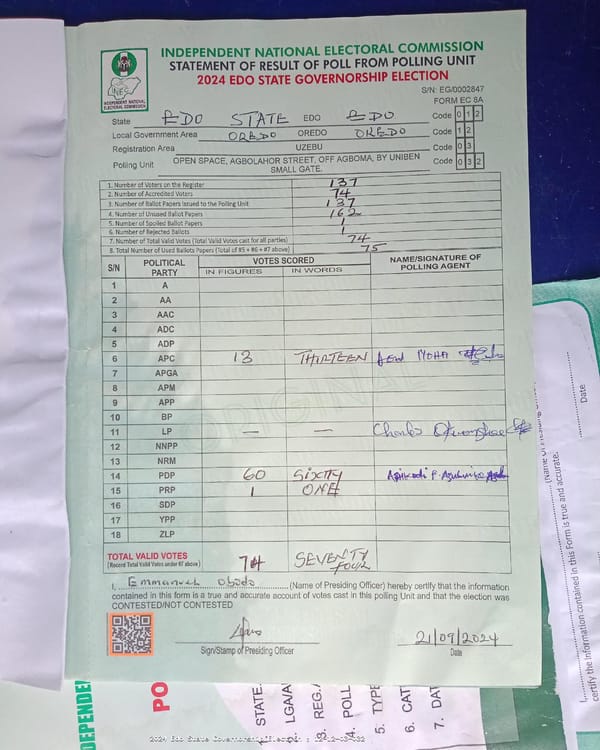 INDEPENDENT NATIONAL ELECTORAL COMMISSION
STATEMENT OF RESULT OF POLL FROM POLLING UNIT
2024 EDO STATE GOVERNORSHIP ELECTION
INEC
INDEPENDENT NATIONAL ELECTORAL COMMISSION
S/N: EG/0002847
FORM EC 8A
State EDO STATE EDO EDO Code 0 1 2
Local Government Area OREDO OREDO OREDO Code 1 2
Registration Area UZEBU Code 0 3
Polling Unit OPEN SPACE, AGBOLAHOR STREET, OFF AGBOMA, BY UNIBEN SMALL GATE. Code 0 3 2
1. Number of Voters on the Register 137
2. Number of Accredited Voters 74
3. Number of Ballot Papers Issued to the Polling Unit 137
4. Number of Unused Ballot Papers 162
5. Number of Spoiled Ballot Papers 1
6. Number of Rejected Ballots 1
7. Number of Total Valid Votes (Total Valid Votes cast for all parties) 74
8. Total Number of Used Ballots Papers (Total of #5 + #6 + #7 above) 75
S/N POLITICAL PARTY VOTES SCORED NAME/SIGNATURE OF POLLING AGENT
IN FIGURES IN WORDS
1 A
2 AA
3 AAC
4 ADC
5 ADP
6 APC 13 THIRTEEN
7 APGA
8 APM
9 APP
10 BP
11 LP — — Charles
12 NNPP
13 NRM
14 PDP 60 SIXTY
15 PRP 1 ONE
16 SDP
17 YPP
18 ZLP
TOTAL VALID VOTES 74 SEVENTY FOUR
(Record Total Valid Votes under #7 above)
I, Emmanuel Obodo (Name of Presiding Officer) hereby certify that the information
contained in this form is a true and accurate account of votes cast in this polling Unit and that the election was
CONTESTED/NOT CONTESTED
Sign/Stamp of Presiding Officer
21/09/2024
Date
Date
I,
certify the information contained in this Form is true and accurate.
STATE
LGA/A
3. REG./
4. POLL
5. TYPE
6. CAT
7. DAT
PO
2024 Edo State Governorship Election